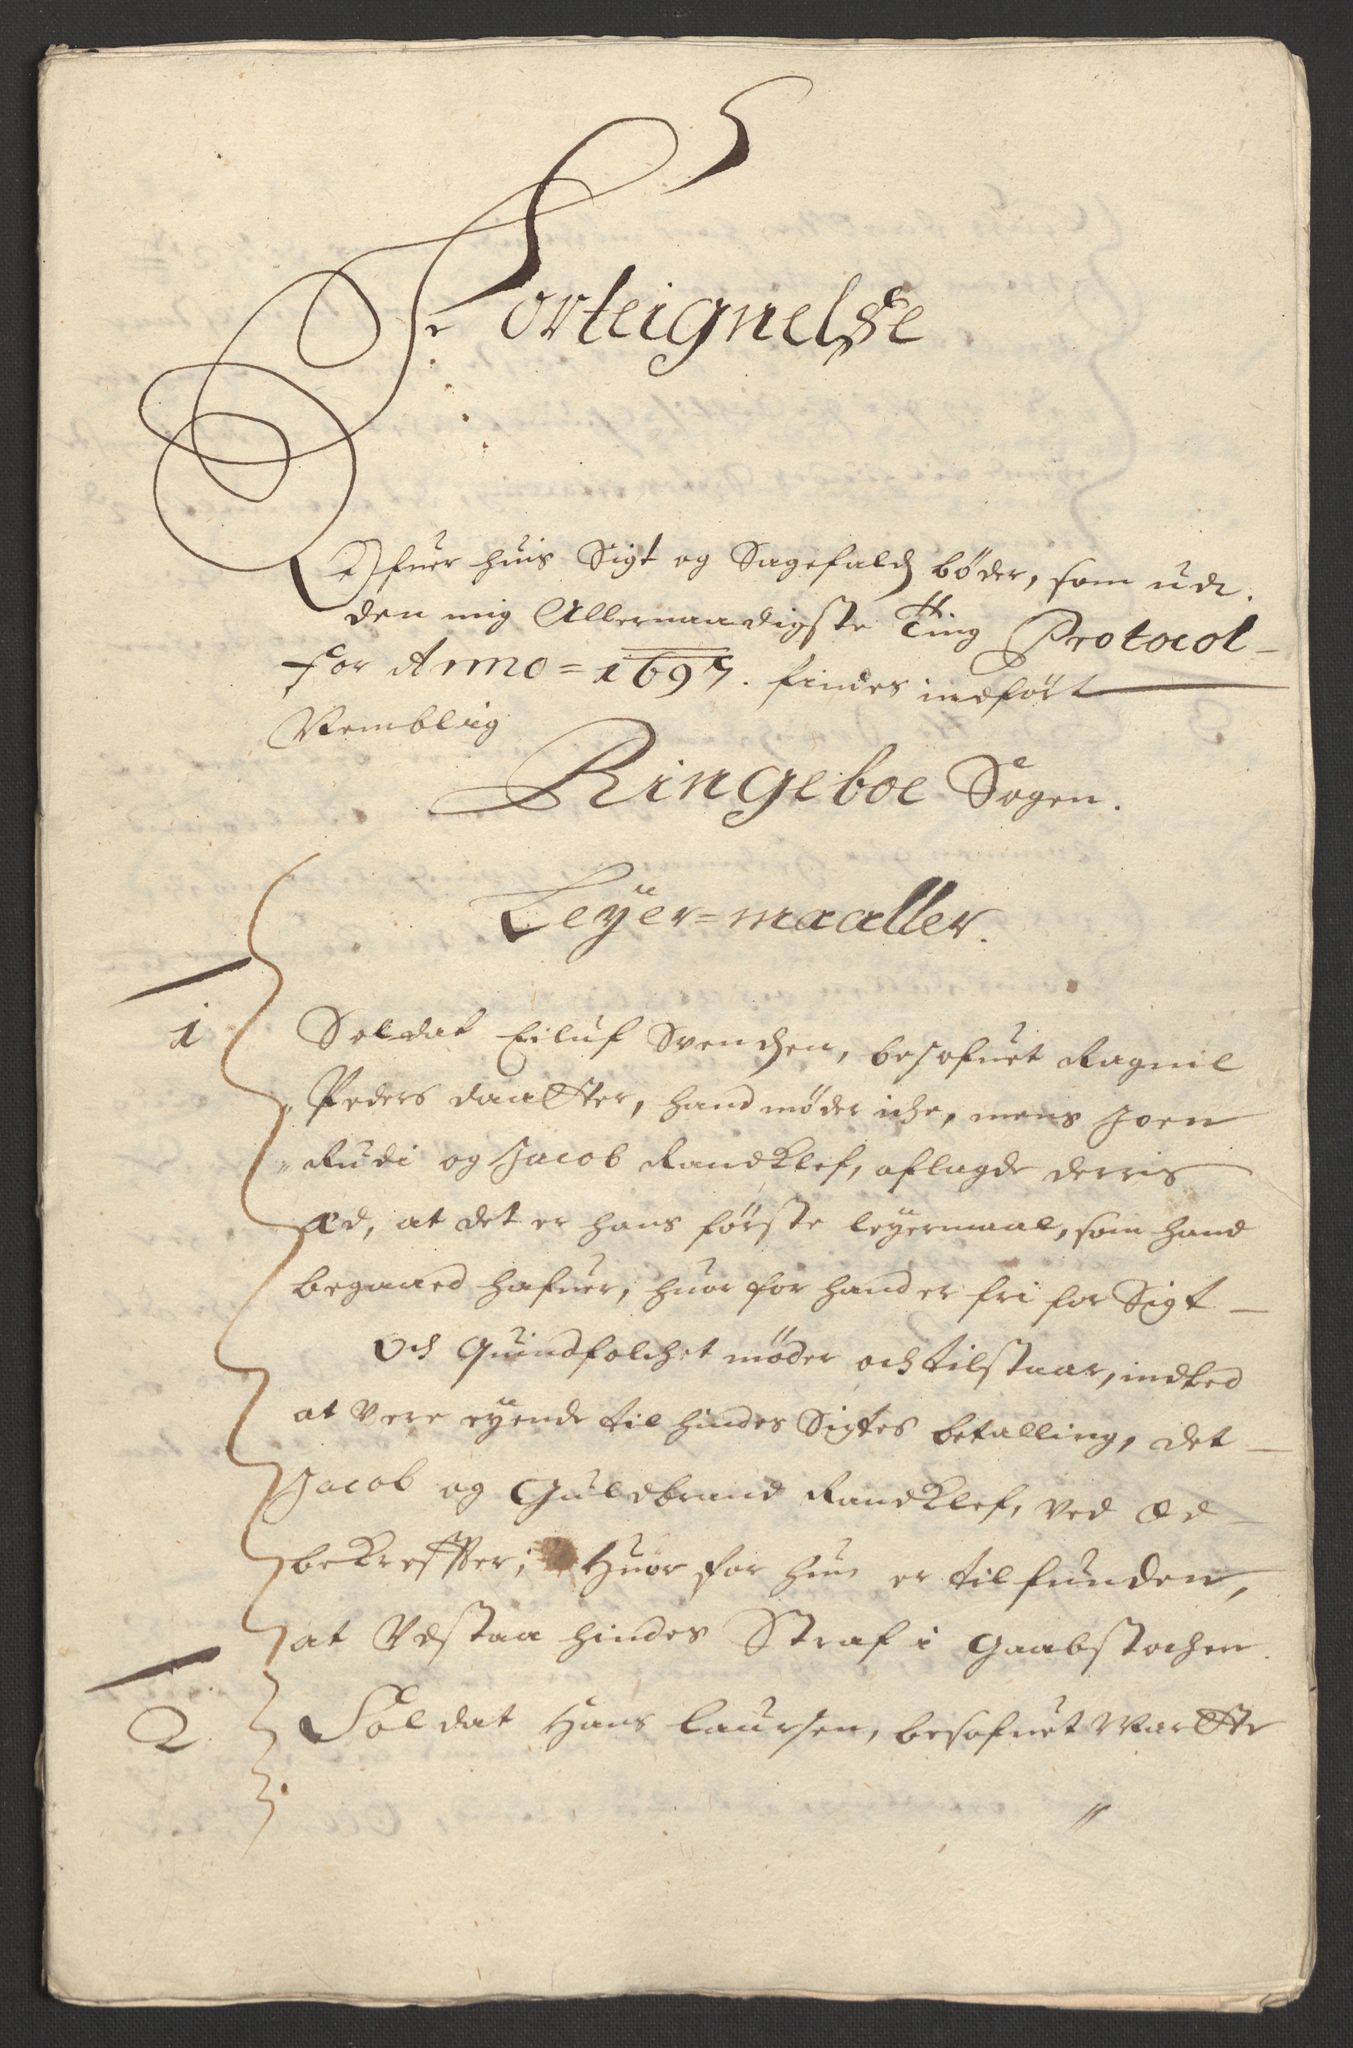 Forteignelse
Ofuer huis Sigt og Sagefalds bøder, som udi
den mig Allernaadigste Ting Protocol
for Anno = 1697. findes indført
Nemblig
Ringeboe Sogen.
Leÿer=maaller.
1 Soldat Eiluf Svendsen, besofuet Ragnil
Peders daatter, hand møder iche, mens Joen
Rudi og Jacob Randklef, aflagde derris
æd, at det er hans første leÿermaal, som hand
begaaed hafuer, huor for hand er fri for Sigt
Och Quindfolchet møder och tilstaar, indted
at vere eÿende til hindes Sigtes betalling, det
Jacob og Guldbrand Randklef, ved æd
bekreffter; Huor for hun er tilfunden,
at udstaa hindes Straf i Gaabstochen.
2 Soldat Hans Laursen, besofuet Martte